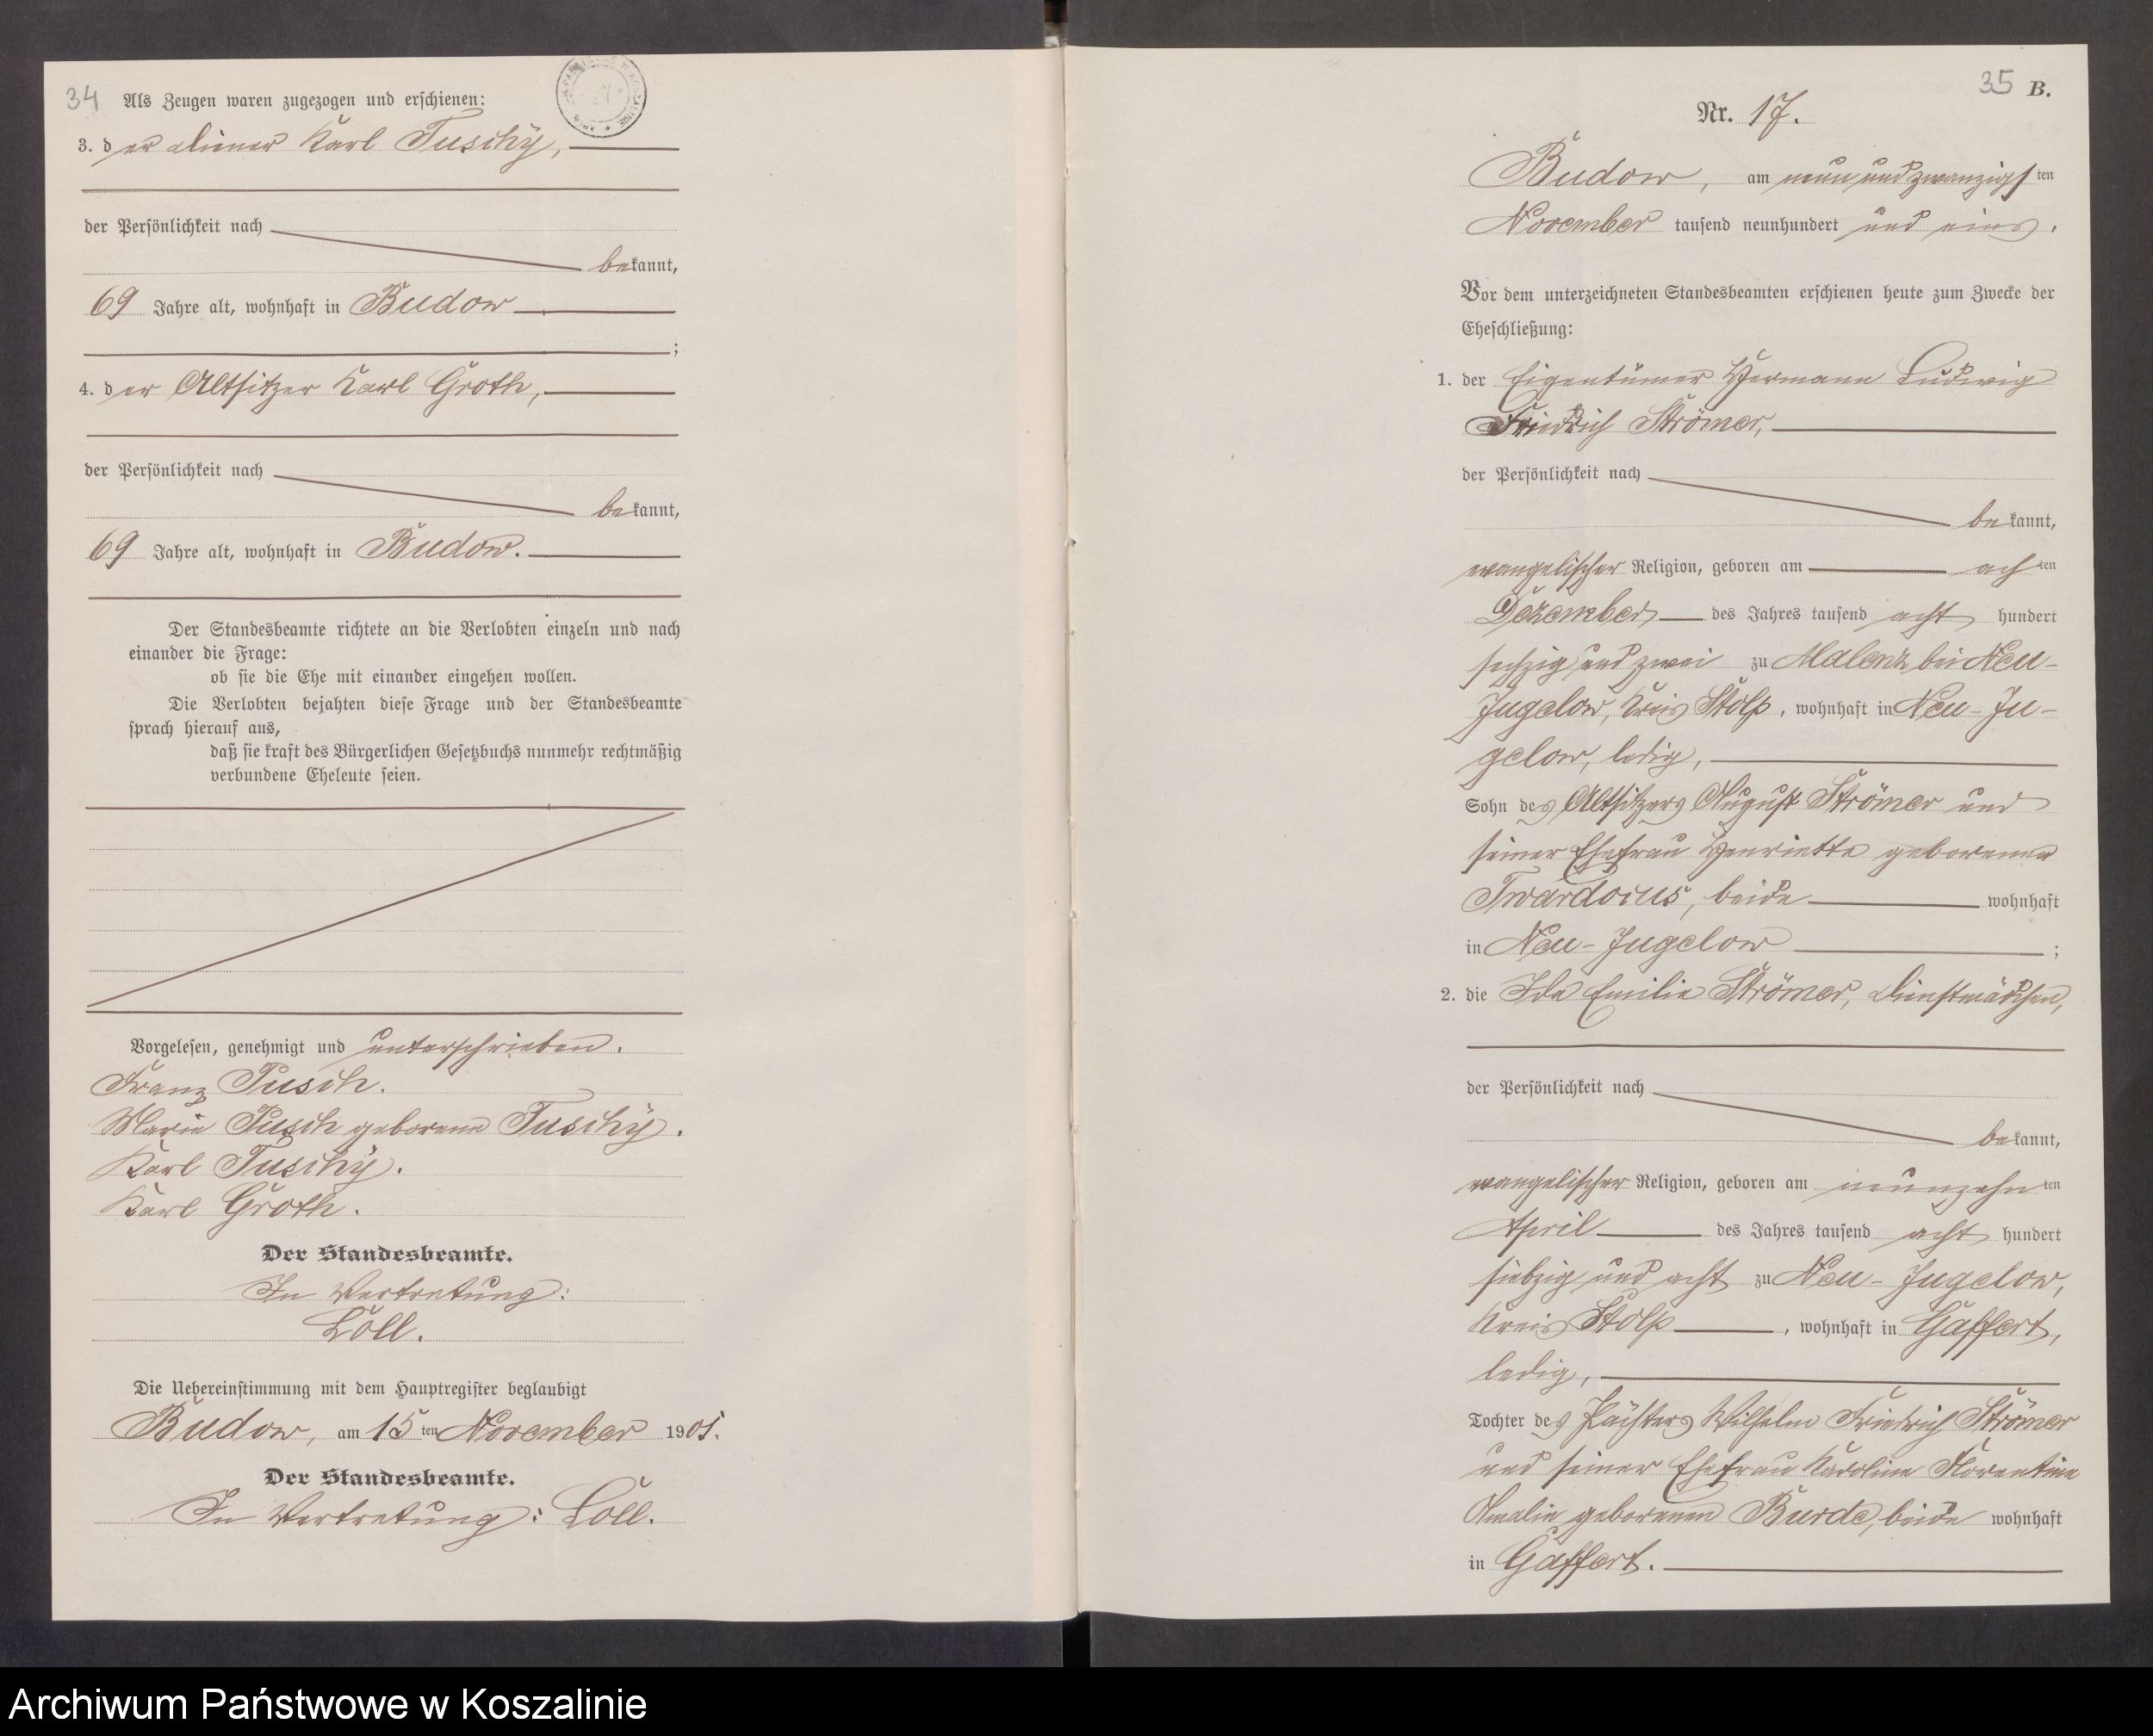 34 Als Zeugen waren zugezogen und erschienen:
3. der Diener Karl Tuschÿ,
der Persönlichkeit nach
bekannt,
69 Jahre alt, wohnhaft in Budow
;
4. der Altsitzer Karl Groth,
der Persönlichkeit nach
bekannt,
69 Jahre alt, wohnhaft in Budow.
Der Standesbeamte richtete an die Verlobten einzeln und nach
einander die Frage:
ob sie die Ehe mit einander eingehen wollen.
Die Verlobten bejahten diese Frage und der Standesbeamte
sprach hierauf aus,
daß sie kraft des Bürgerlichen Gesetzbuchs nunmehr rechtmäßig
verbundene Eheleute seien.
Vorgelesen, genehmigt und unterschrieben.
Franz Pusch.
Marie Pusch geborene Tuschÿ.
Karl Tuschÿ.
Karl Groth.
Der Standesbeamte.
In Vertretung:
Löll.
Die Uebereinstimmung mit dem Hauptregister beglaubigt
Budow, am 15 ten November 1901.
Der Standesbeamte.
In Vertretung: Löll.
35 B.
Nr. 17.
Budow, am neunundzwanzigsten
November tausend neunhundert und eins.
Vor dem unterzeichneten Standesbeamten erschienen heute zum Zwecke der
Eheschließung:
1. der Eigentümer Hermann Ludwig
Friedrich Strömer,
der Persönlichkeit nach
bekannt,
evangelischer Religion, geboren am achten
Dezember des Jahres tausend acht hundert
sechzig und zwei zu Malenz bei Neu-
Jugelow, Kreis Stolp, wohnhaft in Neu-Ju-
gelow, ledig,
Sohn des Altsitzers August Strömer und
seiner Ehefrau Henriette geborenen
Twardocus, beide wohnhaft
in Neu-Jugelow ;
2. die Ida Emilie Strömer, Dienstmädchen,
der Persönlichkeit nach
bekannt,
evangelischer Religion, geboren am neunzehnten
April des Jahres tausend acht hundert
siebzig und acht zu Neu-Jugelow,
Kreis Stolp, wohnhaft in Gaffert,
ledig,
Tochter des Pächters Wilhelm Friedrich Strömer
und seiner Ehefrau Karoline Florentine
Amalie geborenen Burde, beide wohnhaft
in Gaffert.
Archiwum Państwowe w Koszalinie